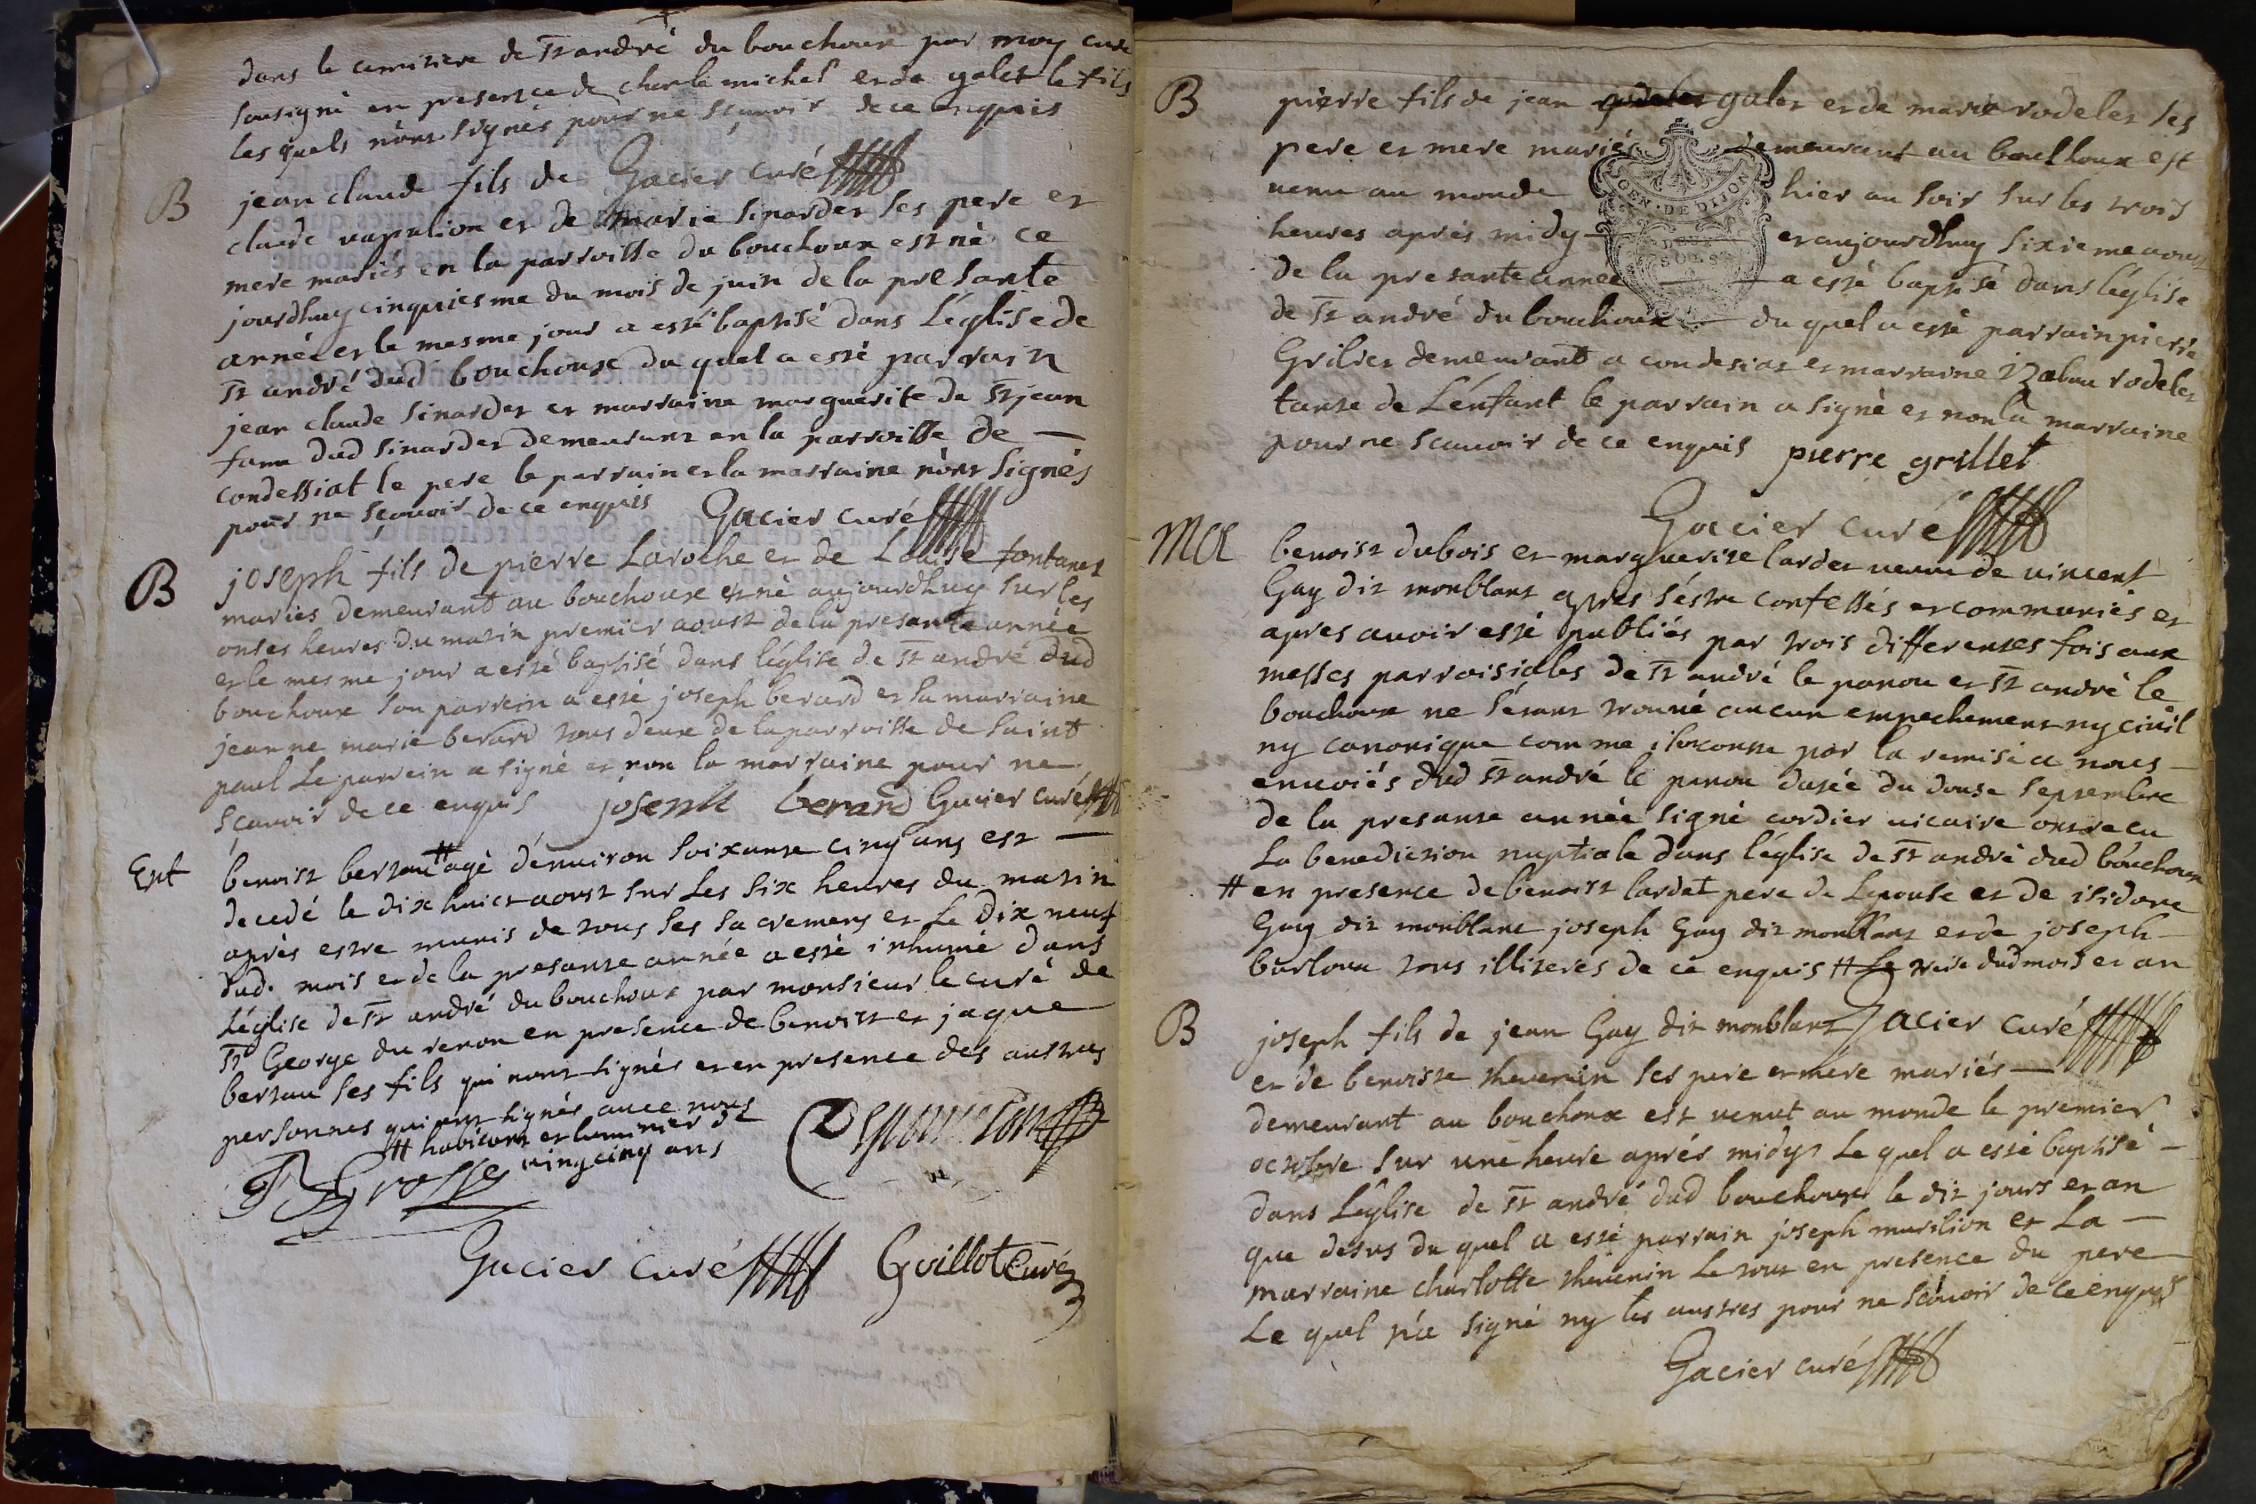 dans le cemitiere de St andré du bouchoux par moy curé
sousigné en presence de charle michel et de galet le fils
lesquels n'ont signés pour ne sçavoir de ce enquis
Gacier curé
B
jean claude fils de
claude vapilion et de marie sinardet ses pere et
mere mariés en la parroisse du bouchoux est né ce
jourdhuy cinquiesme du mois de juin de la presante
année et le mesme jour a esté baptisé dans L'église de
St andré dud bouchoux du quel a esté parrain
jean claude sinardet et marraine marguerite de St jean
fame dud sinardet demeurant en la parroisse de
condessiat le pere le parrain et la marraine n'ont signés
pour ne sçavoir de ce enquis Gacier curé
B
joseph fils de pierre Laroche et de Louise fontanet
mariés demeurant au bouchoux est né aujourdhuy sur les
onses heures du matin premier aoust de la presante année
et le mesme jour a esté baptisé dans léglise de St andré dud
bouchoux son parrein a esté joseph berard et sa marraine
jeanne marie berard tous deux de la parroisse de saint
paul Le parrein a signé et non la marraine pour ne
sçavoir de ce enquis joseph berard Gacier curé
Ent
benoist bertau # agé d'environ soixante cinq ans est
decedé le dix huict aoust sur Les six heures du matin
après estre munis de tous ses sacremens et Le dix neuf
dud. mois et de la presante année a esté inhumé dans
L'église de St andré du bouchoux par monsieur le curé de
St George du renon en presence de benoist et jaque
bertau ses fils qui nont signés et en presence des austres
personnes qui ont signés avec nous
# habitant et luminier de
vingcinq ans
Gacier curé Guillot Curé
B
pierre fils de jean galet et de marie rodelet ses
pere et mere mariés demeurant au bouchoux est
venu au monde hier au soir sur les trois
heures après midy et aujourdhuy sixieme aoust
de la presante année a esté baptisé dans léglise
de St andré du bouchoux du quel a esté parrain pierre
Grilier demeurant a condesiat et marraine izabau rodelet
tante de L'énfant le parrain a signé et non la marraine
pour ne scavoir de ce enquis pierre grillet
Gacier curé
GEN. DE DIJON
DEUX
SOLS
Ma
benoist dubois et marguerite lardet veuve de vincent
Gay dit monblant apres s'éstre confessés et communiés et
apres avoir esté publiés par trois differentes fois aux
messes parroisiales de St andré le panou et St andré le
bouchoux ne s'étant trouvé aucun empechement ny civil
ny canonique comme il conste par la remise a nous
envoiés dud St andré le panou datée du douse septembre
de la presante année signé cordier vicaire ont recu
La benediction nuptiale dans l'église de St andré dud bouchoux
# en presence de benoist lardet pere de Lepouse et de isidore
Gay dit monblant joseph Gay dit monblant et de joseph
burlou tous illiterés de ce enquis # Le treise dud mois et an
Gacier curé
B
joseph fils de jean Gay dit monblant
et de benoiste thevenin ses pere et mére mariés
demeurant au bouchoux est venut au monde le premier
octobre sur une heure aprés midy Le quel a esté baptisé
dans L'église de St andré dud bouchoux le dit jours et an
que desus du quel a esté parrain joseph murilion et La
marraine charlotte thevenin Le tout en presence du pere
Le quel n'a signé ny les austres pour ne scavoir de ce enquis
Gacier curé